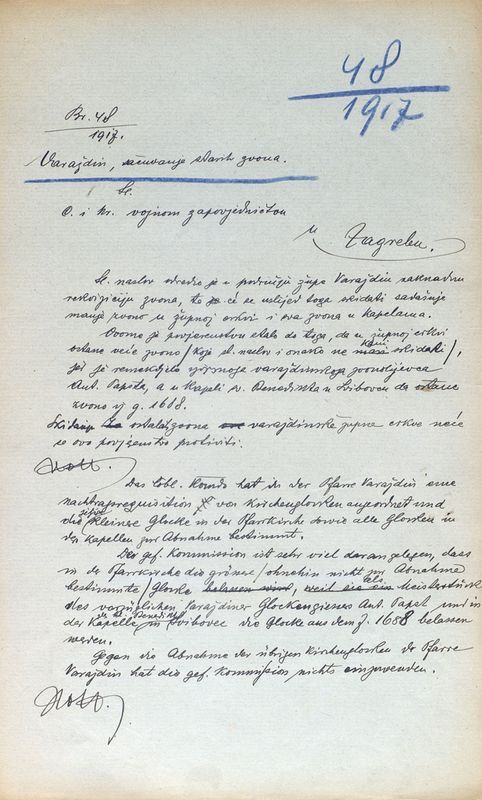 48
1917
Br. 48
1917.
Varaždin, čuvanje starih zvona.
Sl.
C. i kr. vojnom zapovjedničtvu
u
Zagrebu.
Sl. naslov odredio je u području župe Varaždin naknadnu
rekviziciju zvona, te će se uslijed toga skidati sadašnje
manje zvono u župnoj crkvi i sva zvona u kapelama.
Ovome je povjerenstvu stalo do toga, da u župnoj crkvi
ostane veće zvono / koje sl. naslov i onako ne kani skidati /,
jer je remekdjelo varaždinskoga zvonoljevca
Ant. Papeta, a u kapeli sv. Benedikta u Svibovcu da ostane
zvono iz g. 1688.
Skidanju ostalih zvona varaždinske župne crkve neće
se ovo povjerenstvo protiviti.
Das löbl. Komdo hat in der Pfarre Varaždin eine
nachtragsrequisition von Kirchenglocken angeordnet und
die jetzige kleinere Glocke in der Pfarrkirche sowie alle Glocken in
den Kapellen zur Abnahme bestimmt.
Der gef. Kommission ist sehr viel daran gelegen, dass
in der Pfarrkirche die grössere / ohnehin nicht zur Abnahme
bestimmte / Glocke belassen wird, weil sie ein als Meisterstück
des vorzüglichen Varaždiner Glockengiesers Ant. Papet und in
der Kapelle des hl. Benedikt in Svibovec die Glocke aus dem J. 1688 belassen
werden.
Gegen die Abnahme der übrigen Kirchenglocken der Pfarre
Varaždin hat die gef. Kommission nichts einzuwenden.